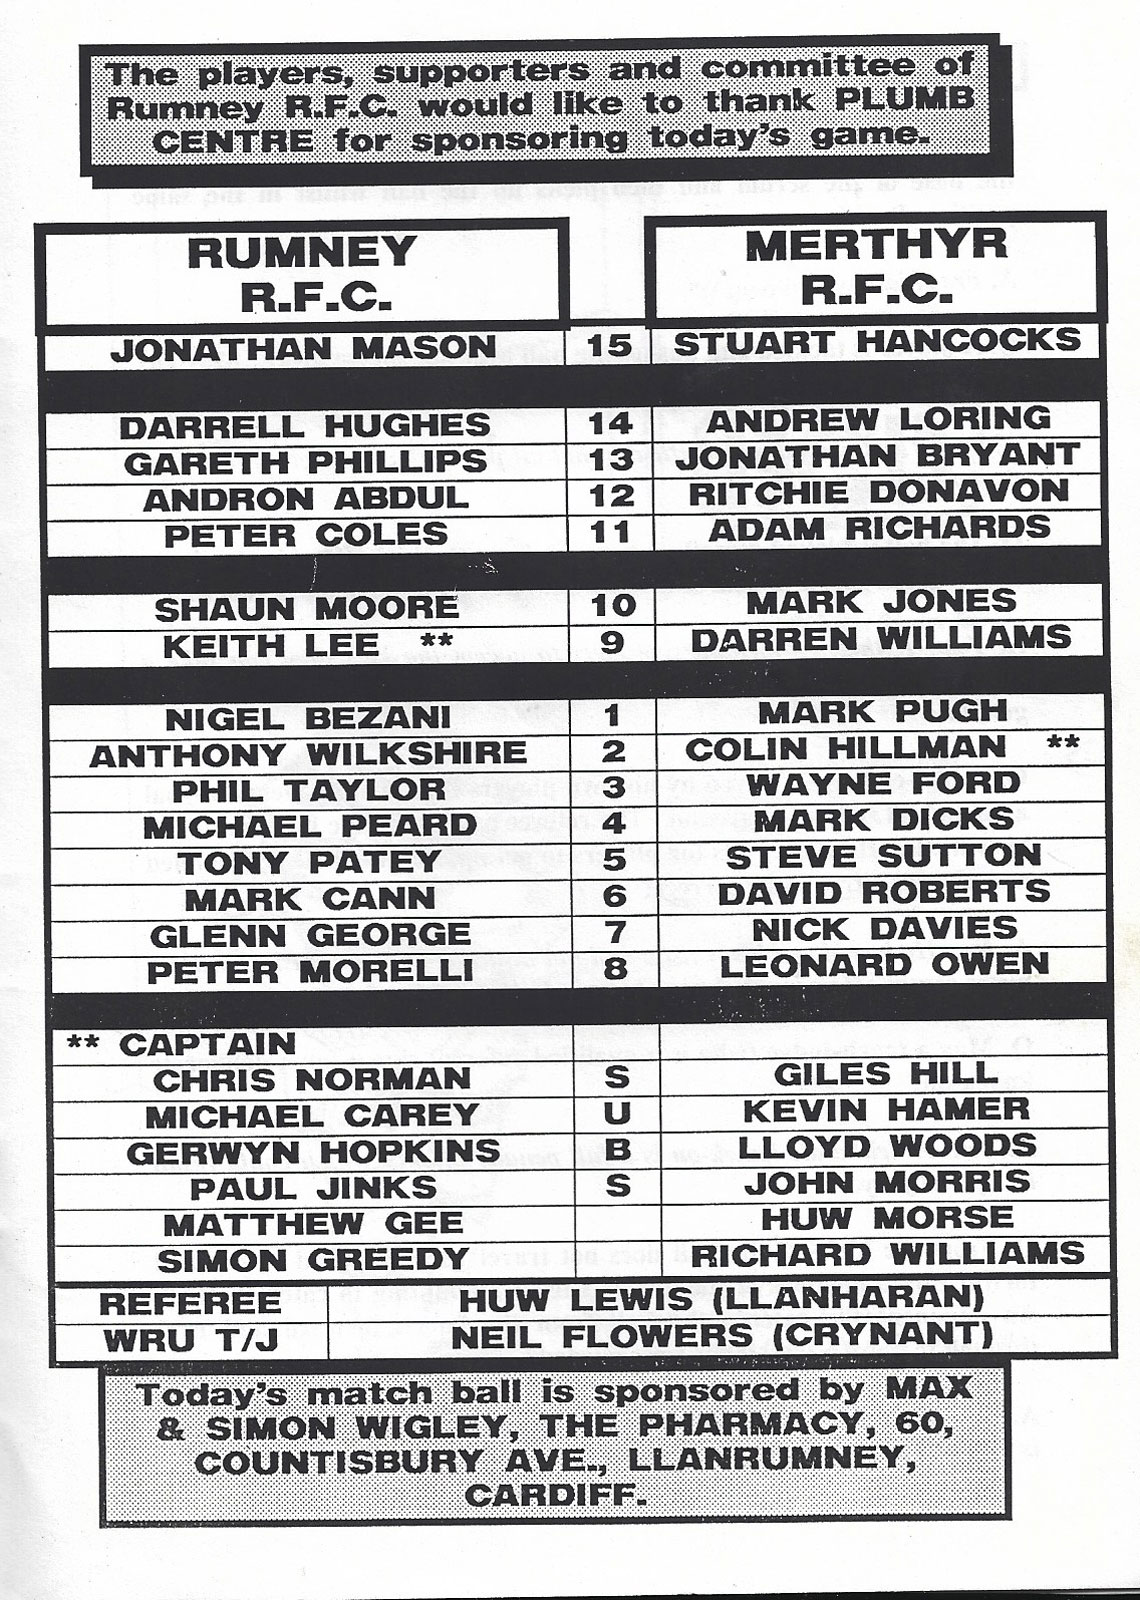 The players, supporters and committee of
Rumney R.F.C. would like to thank PLUMB
CENTRE for sponsoring today's game.
RUMNEY
R.F.C.
MERTHYR
R.F.C.
JONATHAN MASON 15 STUART HANCOCKS
DARRELL HUGHES 14 ANDREW LORING
GARETH PHILLIPS 13 JONATHAN BRYANT
ANDRON ABDUL 12 RITCHIE DONAVON
PETER COLES 11 ADAM RICHARDS
SHAUN MOORE 10 MARK JONES
KEITH LEE ** 9 DARREN WILLIAMS
NIGEL BEZANI 1 MARK PUGH
ANTHONY WILKSHIRE 2 COLIN HILLMAN **
PHIL TAYLOR 3 WAYNE FORD
MICHAEL PEARD 4 MARK DICKS
TONY PATEY 5 STEVE SUTTON
MARK CANN 6 DAVID ROBERTS
GLENN GEORGE 7 NICK DAVIES
PETER MORELLI 8 LEONARD OWEN
** CAPTAIN
CHRIS NORMAN S GILES HILL
MICHAEL CAREY U KEVIN HAMER
GERWYN HOPKINS B LLOYD WOODS
PAUL JINKS S JOHN MORRIS
MATTHEW GEE HUW MORSE
SIMON GREEDY RICHARD WILLIAMS
REFEREE HUW LEWIS (LLANHARAN)
WRU T/J NEIL FLOWERS (CRYNANT)
Today's match ball is sponsored by MAX
& SIMON WIGLEY, THE PHARMACY, 60,
COUNTISBURY AVE., LLANRUMNEY,
CARDIFF.